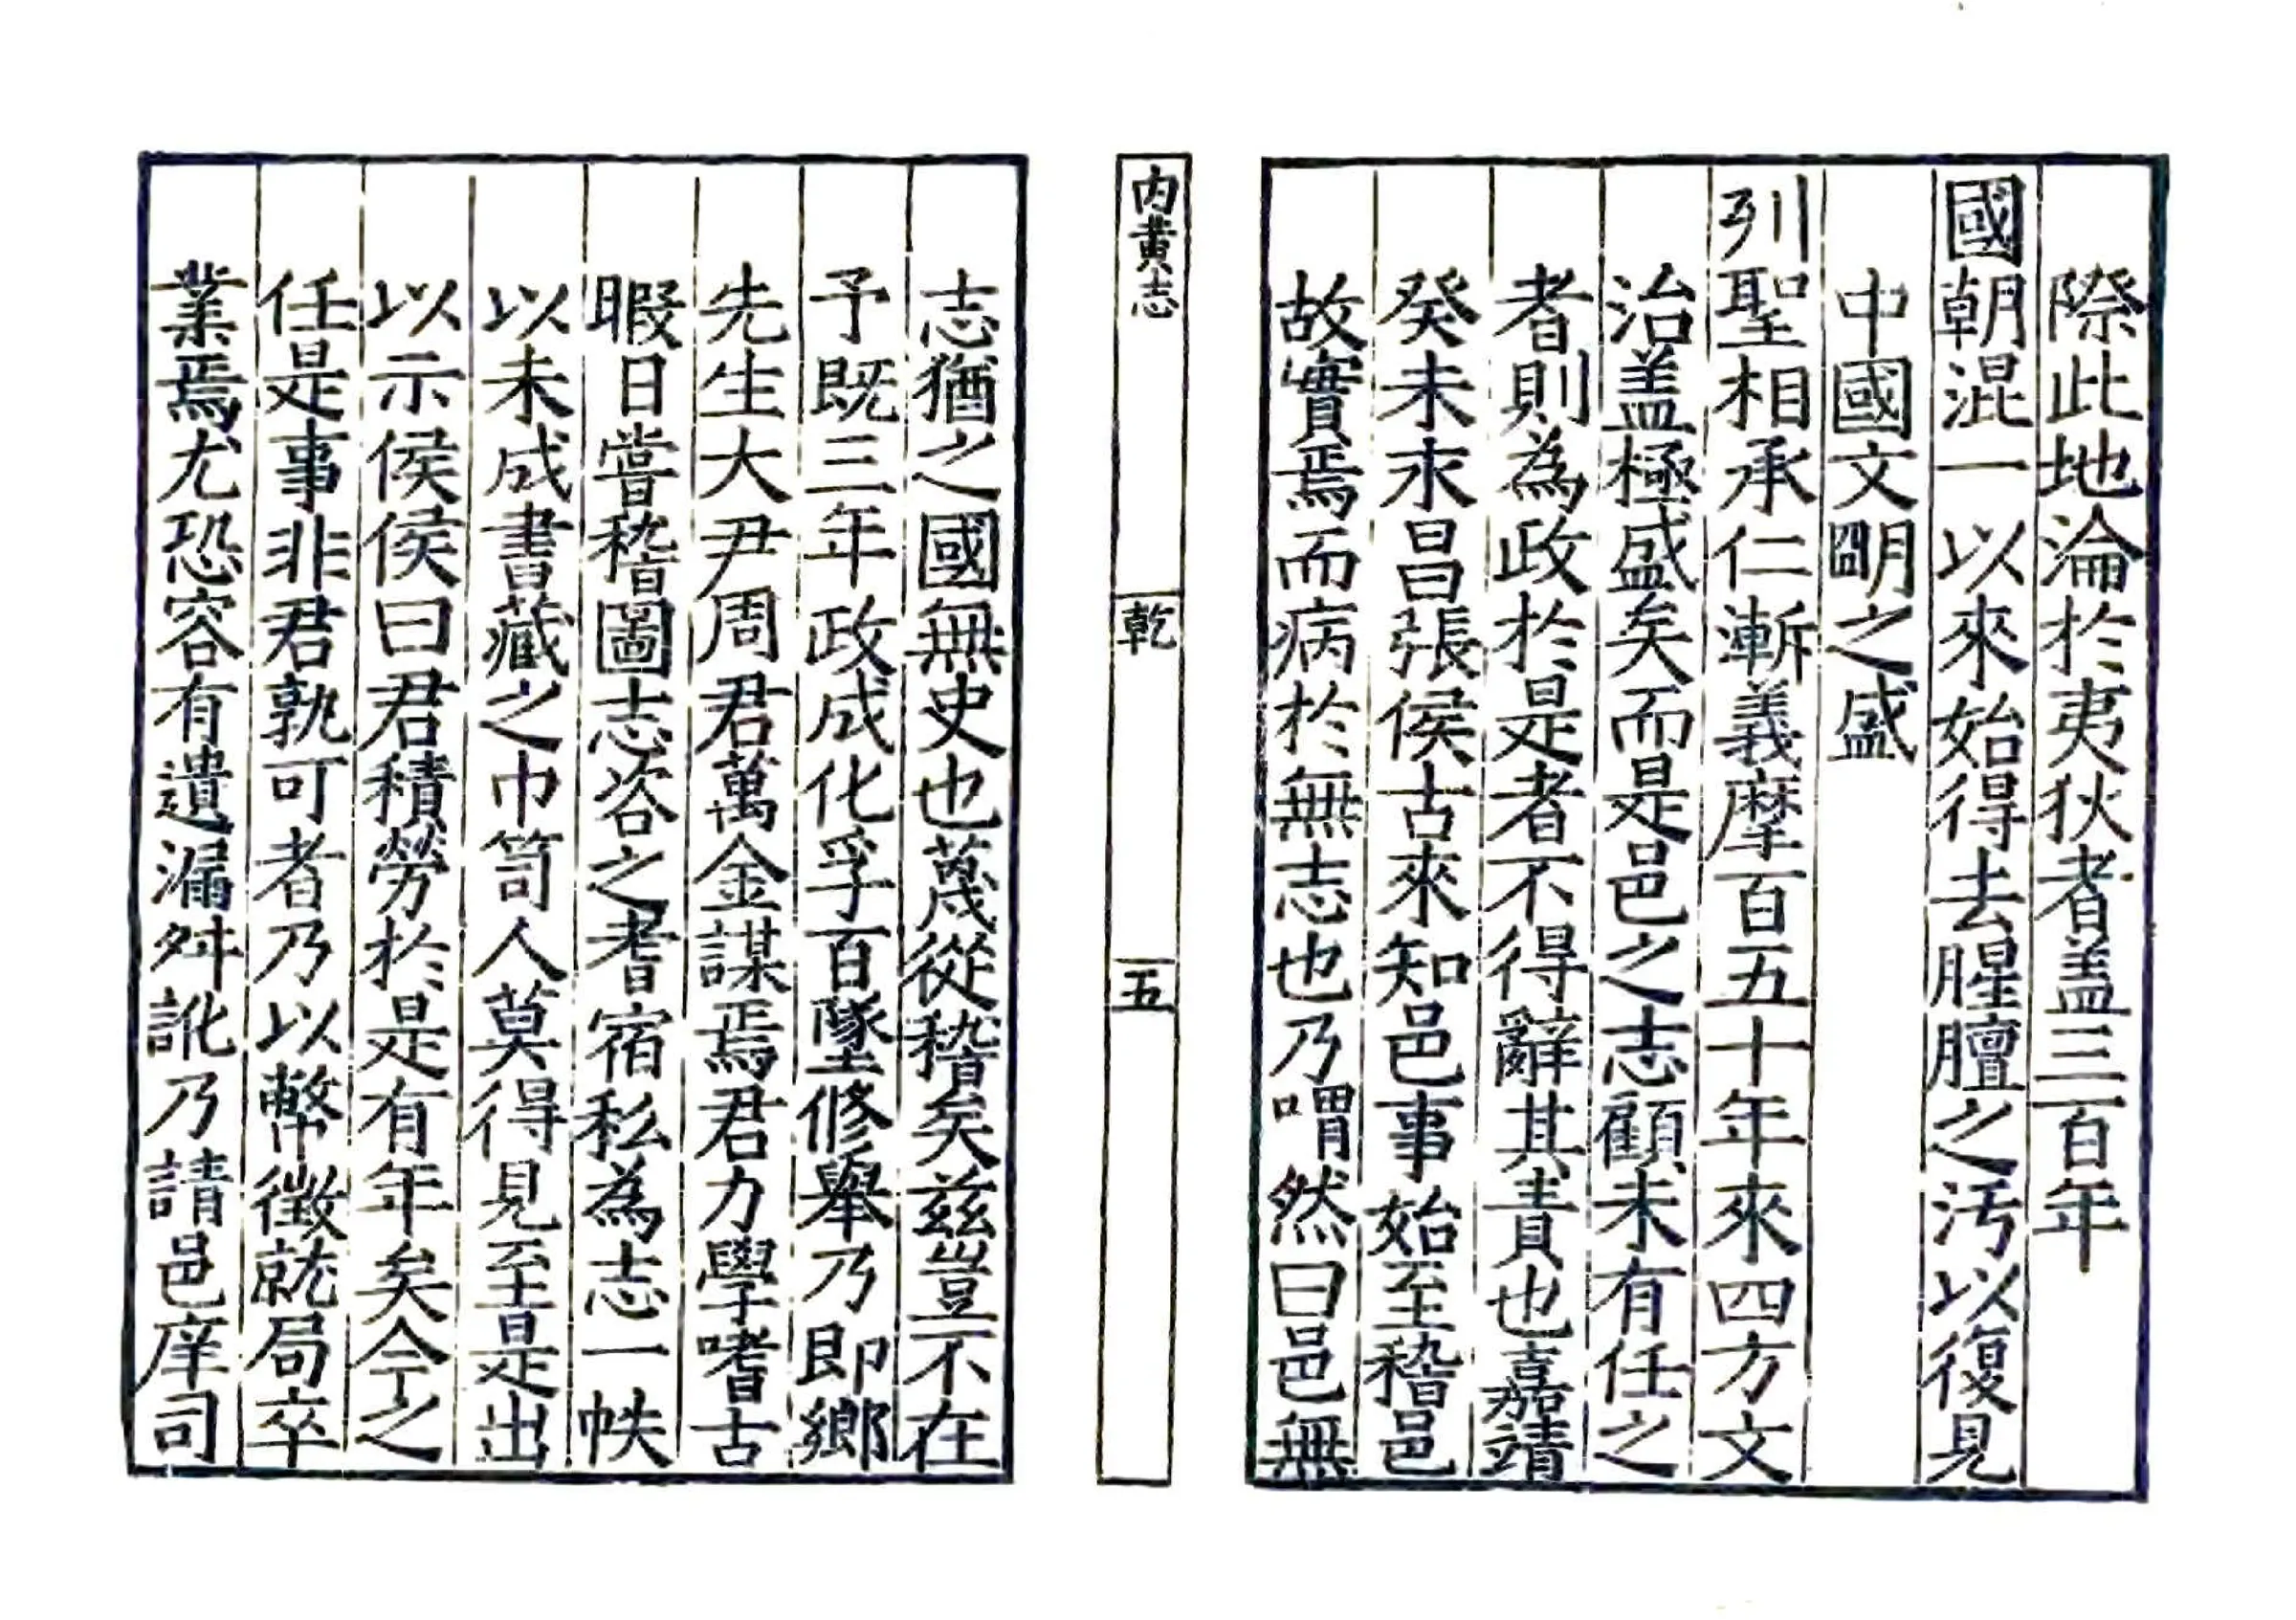 際此地淪於夷狄者盖三百年
國朝混一以來始得去腥膻之汚以復見
中國文明之盛
列聖相承仁漸義摩百五十年來四方文
治盖極盛矣而是邑之志顧未有任之
者則為政於是者不得辭其責也嘉靖
癸未永昌張侯古來知邑事始至稽邑
故實焉而病於無志也乃喟然曰邑無
內黃志
乾
五
志猶之國無史也蔑從稽矣兹豈不在
予既三年政成化孚百墜修舉乃即鄉
先生大尹周君萬金謀焉君力學嗜古
暇日嘗稽圖志咨之耆宿私為志一帙
以未成書藏之巾笥人莫得見至是出
以示侯侯曰君積勞於是有年矣今之
任是事非君孰可者乃以幣徵就局卒
業焉尤恐容有遺漏舛訛乃請邑庠司